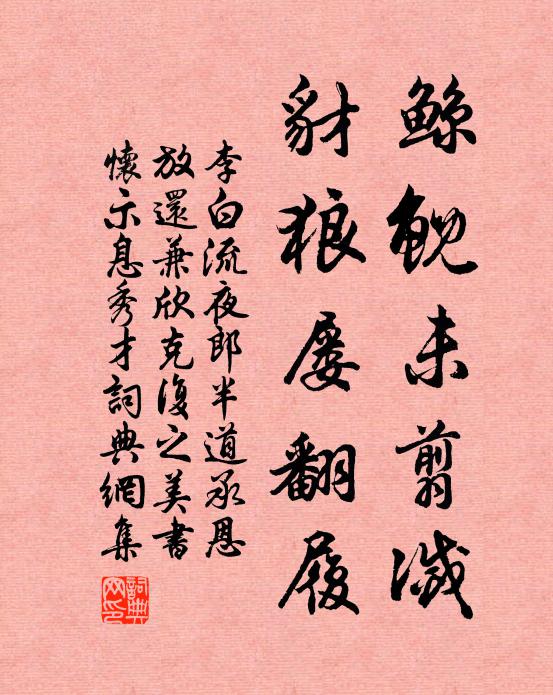 鯨鯢未翦滅
豺狼屡翻履
李白流夜郎半道承恩
放還兼欣克復之美書
懷示息秀才詞典網集
詞典
网印